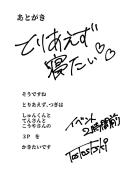 あとがき
とりあえず
寝たい♡♡
そうですね
とりあえず、つぎは
しゅんくんと
てんさんと
こうやさんの
3P を
かきたいです
イベント
2時間前